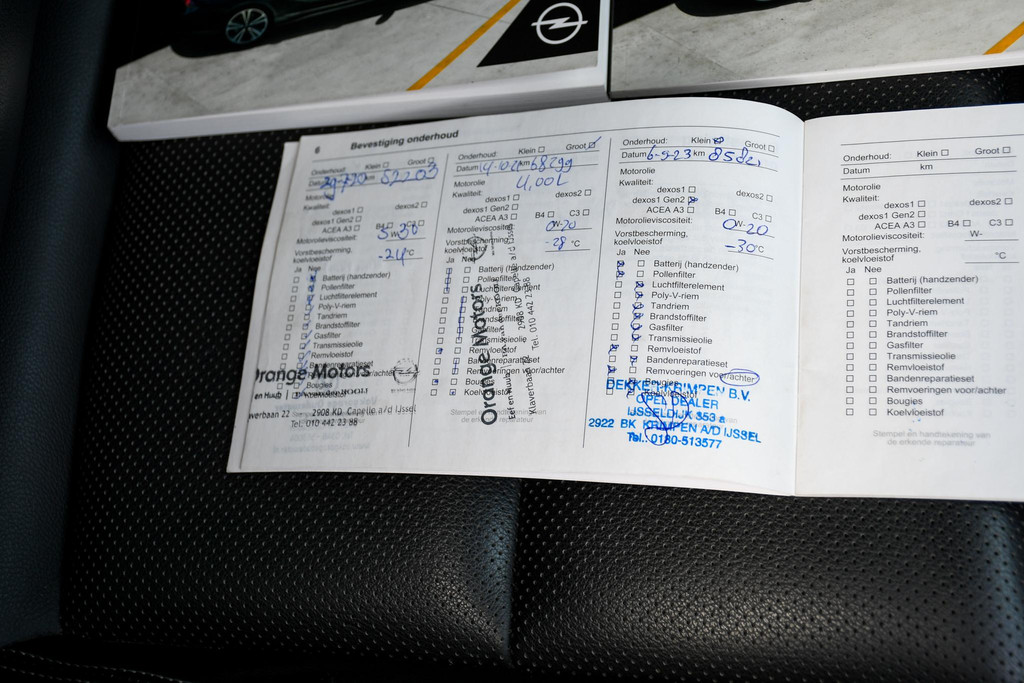 6 Bevestiging onderhoud
Onderhoud: Klein Groot
km 52203
Kwaliteit:
dexos1 dexos2
dexos1 Gen2
ACEA A3 B4 C3
Motorolieviscositeit:
Vorstbescherming,
koelvloeistof °C
Ja Nee
Batterij (handzender)
Pollenfilter
Luchtfilterelement
Poly-V-riem
Tandriem
Brandstoffilter
Gasfilter
Transmissieolie
Remvloeistof
Bandenreparatieset
Orange Motors
Bougies
2908 KD Capelle a/d IJssel
Tel. 010 442 23 88
Onderhoud: Klein Groot
Datum km 68299
Motorolie 4,00L
Kwaliteit:
dexos1 dexos2
dexos1 Gen2
ACEA A3 B4 C3
Motorolieviscositeit: 0W-20
Vorstbescherming,
koelvloeistof -28 °C
Ja Nee
Batterij (handzender)
Pollenfilter
Luchtfilterelement
Poly-V-riem
Tandriem
Brandstoffilter
Gasfilter
Transmissieolie
Remvloeistof
Bandenreparatieset
Remvoeringen voor/achter
Bougies
Koelvloeistof
Orange Motors
Onderhoud: Klein Groot
Datum 6-9-23 km
Motorolie
Kwaliteit:
dexos1 dexos2
dexos1 Gen2
ACEA A3 B4 C3
Motorolieviscositeit: 0W-20
Vorstbescherming,
koelvloeistof -30 °C
Ja Nee
Batterij (handzender)
Pollenfilter
Luchtfilterelement
Poly-V-riem
Tandriem
Brandstoffilter
Gasfilter
Transmissieolie
Remvloeistof
Bandenreparatieset
Remvoeringen voor/achter
Bougies
KRIMPEN B.V.
OPEL DEALER
IJSSELDIJK 353 a
2922 BK KRIMPEN A/D IJSSEL
Tel. 0180-513577
Onderhoud: Klein Groot
Datum km
Motorolie
Kwaliteit:
dexos1 dexos2
dexos1 Gen2
ACEA A3 B4 C3
Motorolieviscositeit: W-
Vorstbescherming,
koelvloeistof °C
Ja Nee
Batterij (handzender)
Pollenfilter
Luchtfilterelement
Poly-V-riem
Tandriem
Brandstoffilter
Gasfilter
Transmissieolie
Remvloeistof
Bandenreparatieset
Remvoeringen voor/achter
Bougies
Koelvloeistof
Stempel en handtekening van
de erkende reparateur